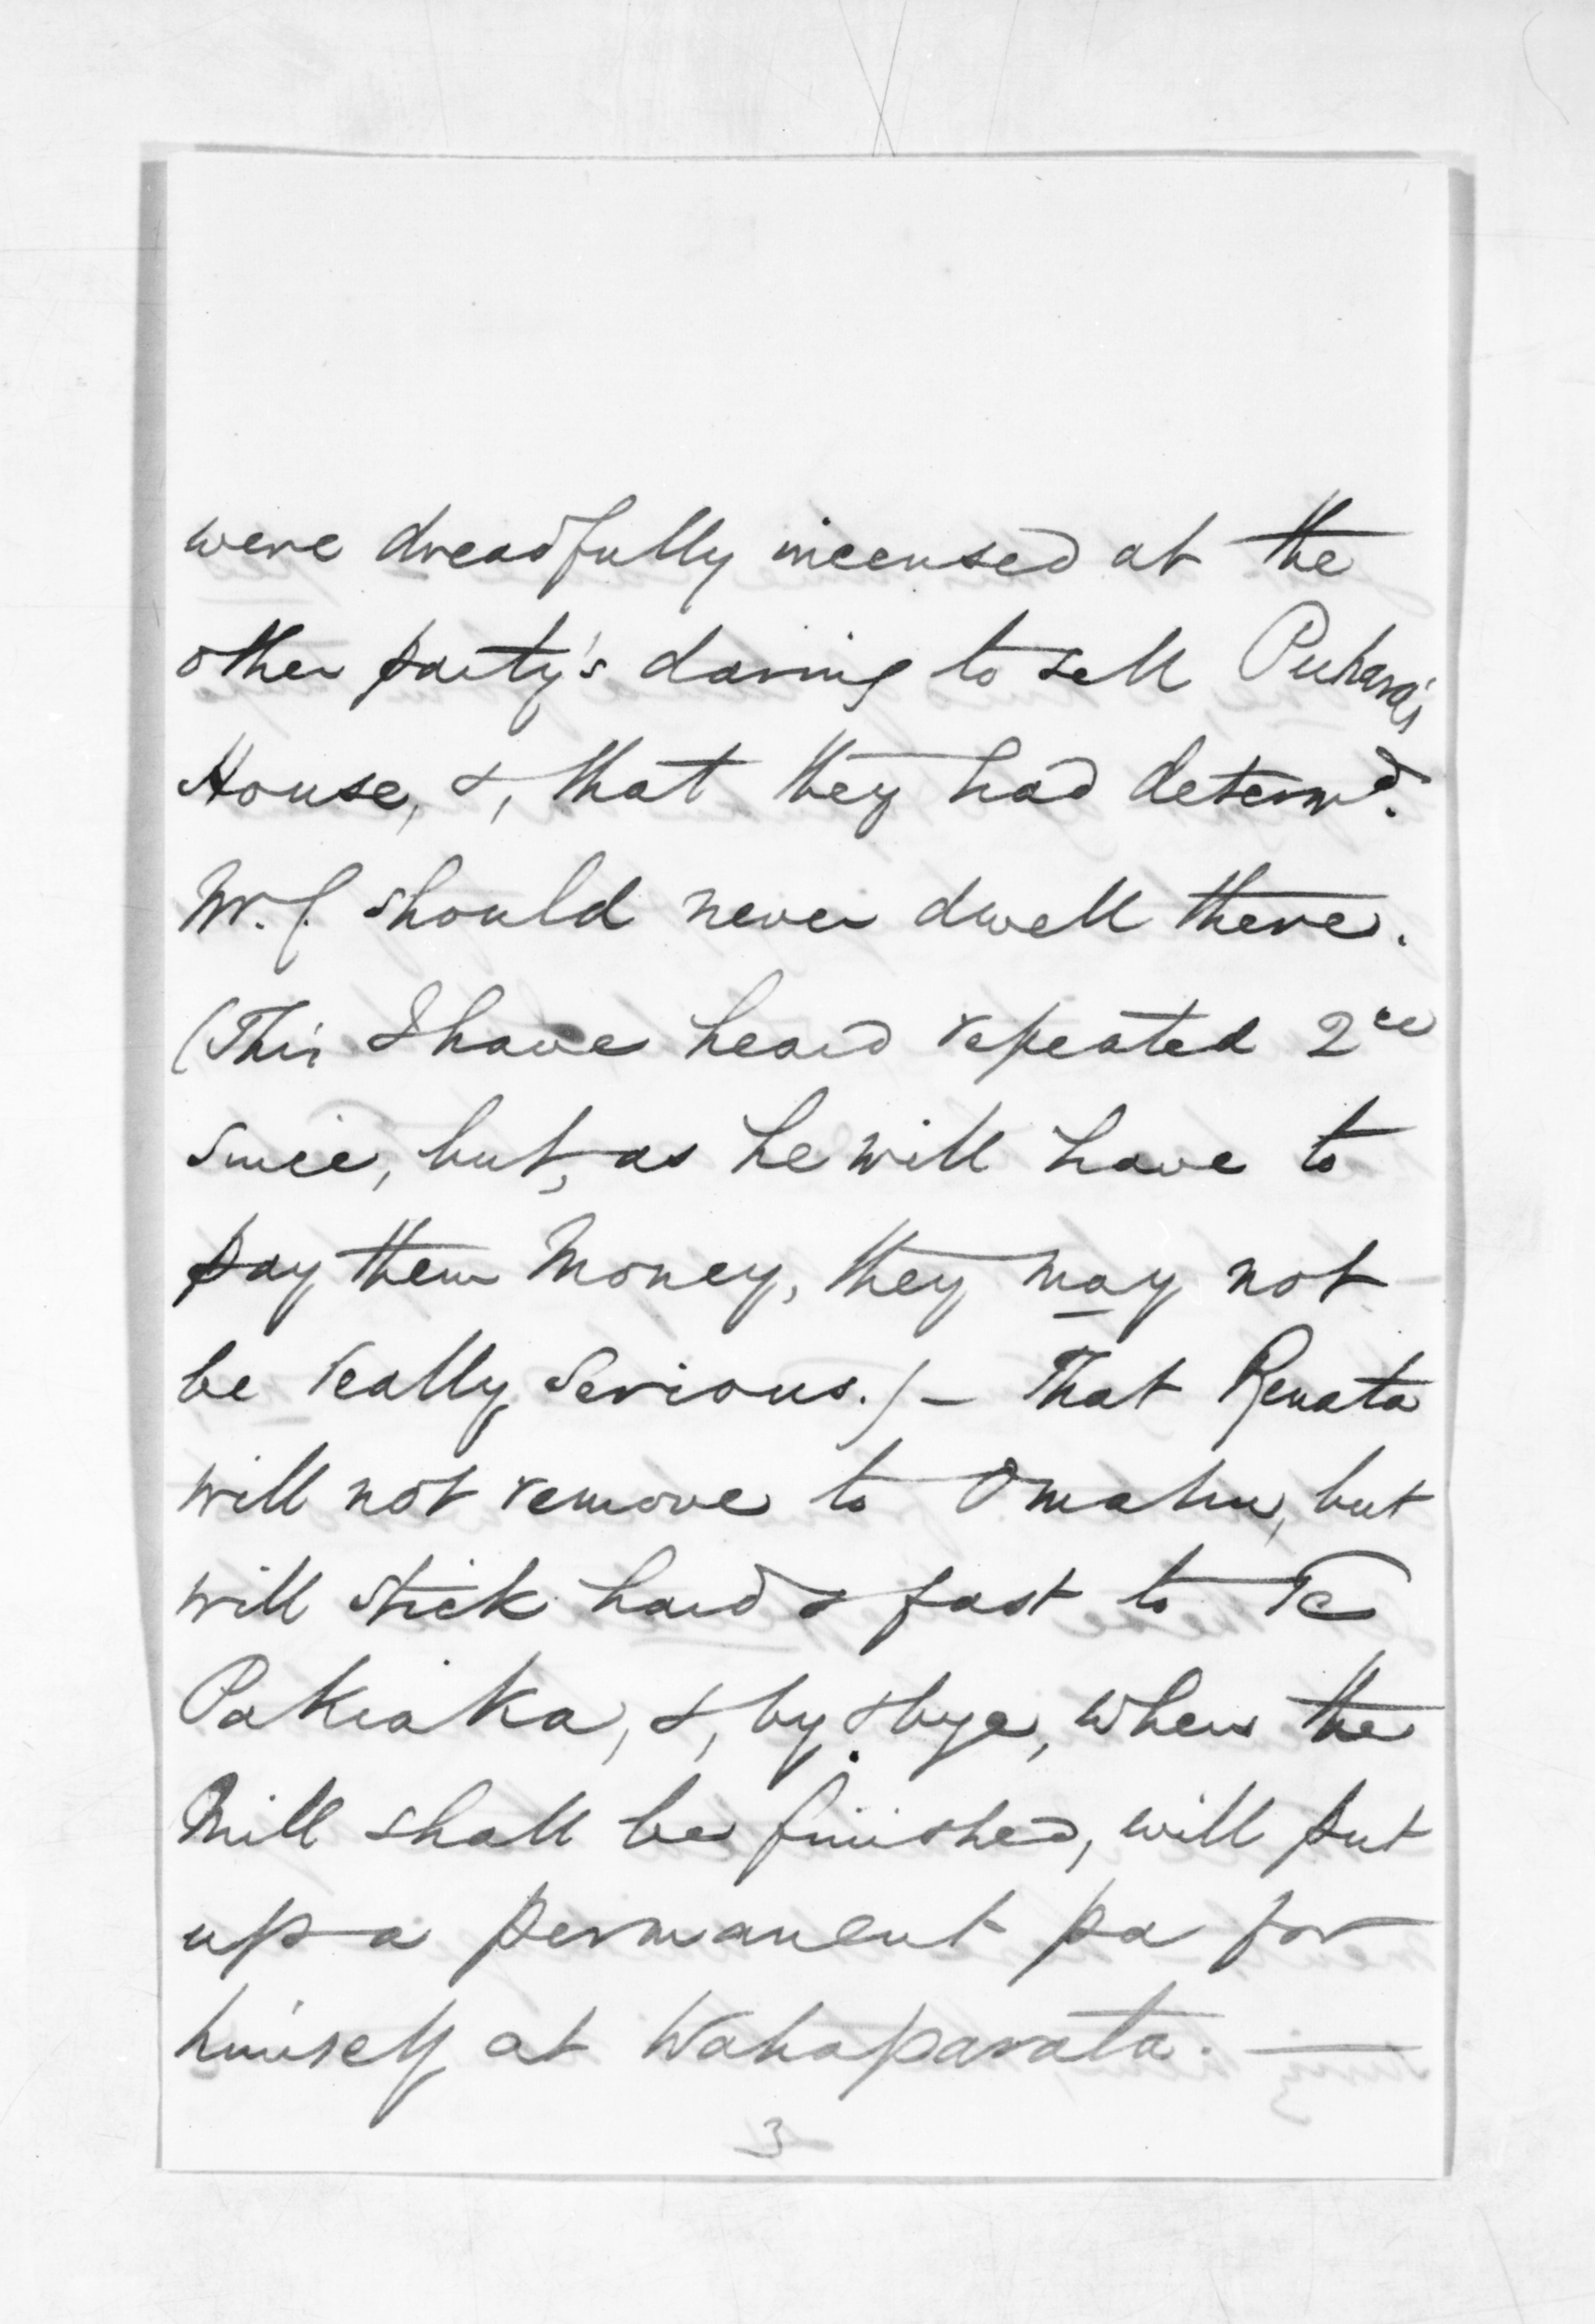 were dreadfully incensed at the
other party's daring to sell Puhara's
House, &, that they had determd.
W.C. should never dwell there.
(This I have heard repeated 2ce
since, but, as he will have to
pay them money, they may not
be really serious.) – That Renata
will not remove to Omahu, but
will stick hard & fast to Te
Pakiaka, &, by & bye, when the
Mill shall be finished, will put
up a permanent pa for
himself at Wahaparata. —
3